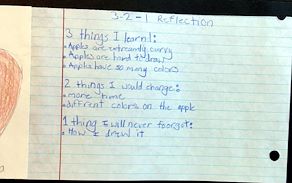 3-2-1 Reflection
3 things I learnd:
• Apples are extreamly curvy
• Apples are hard to draw
• Apples have so many colors
2 things I would change:
• more time
• diffrent colors on the apple
1 thing I will never foorget:
• How I drew it